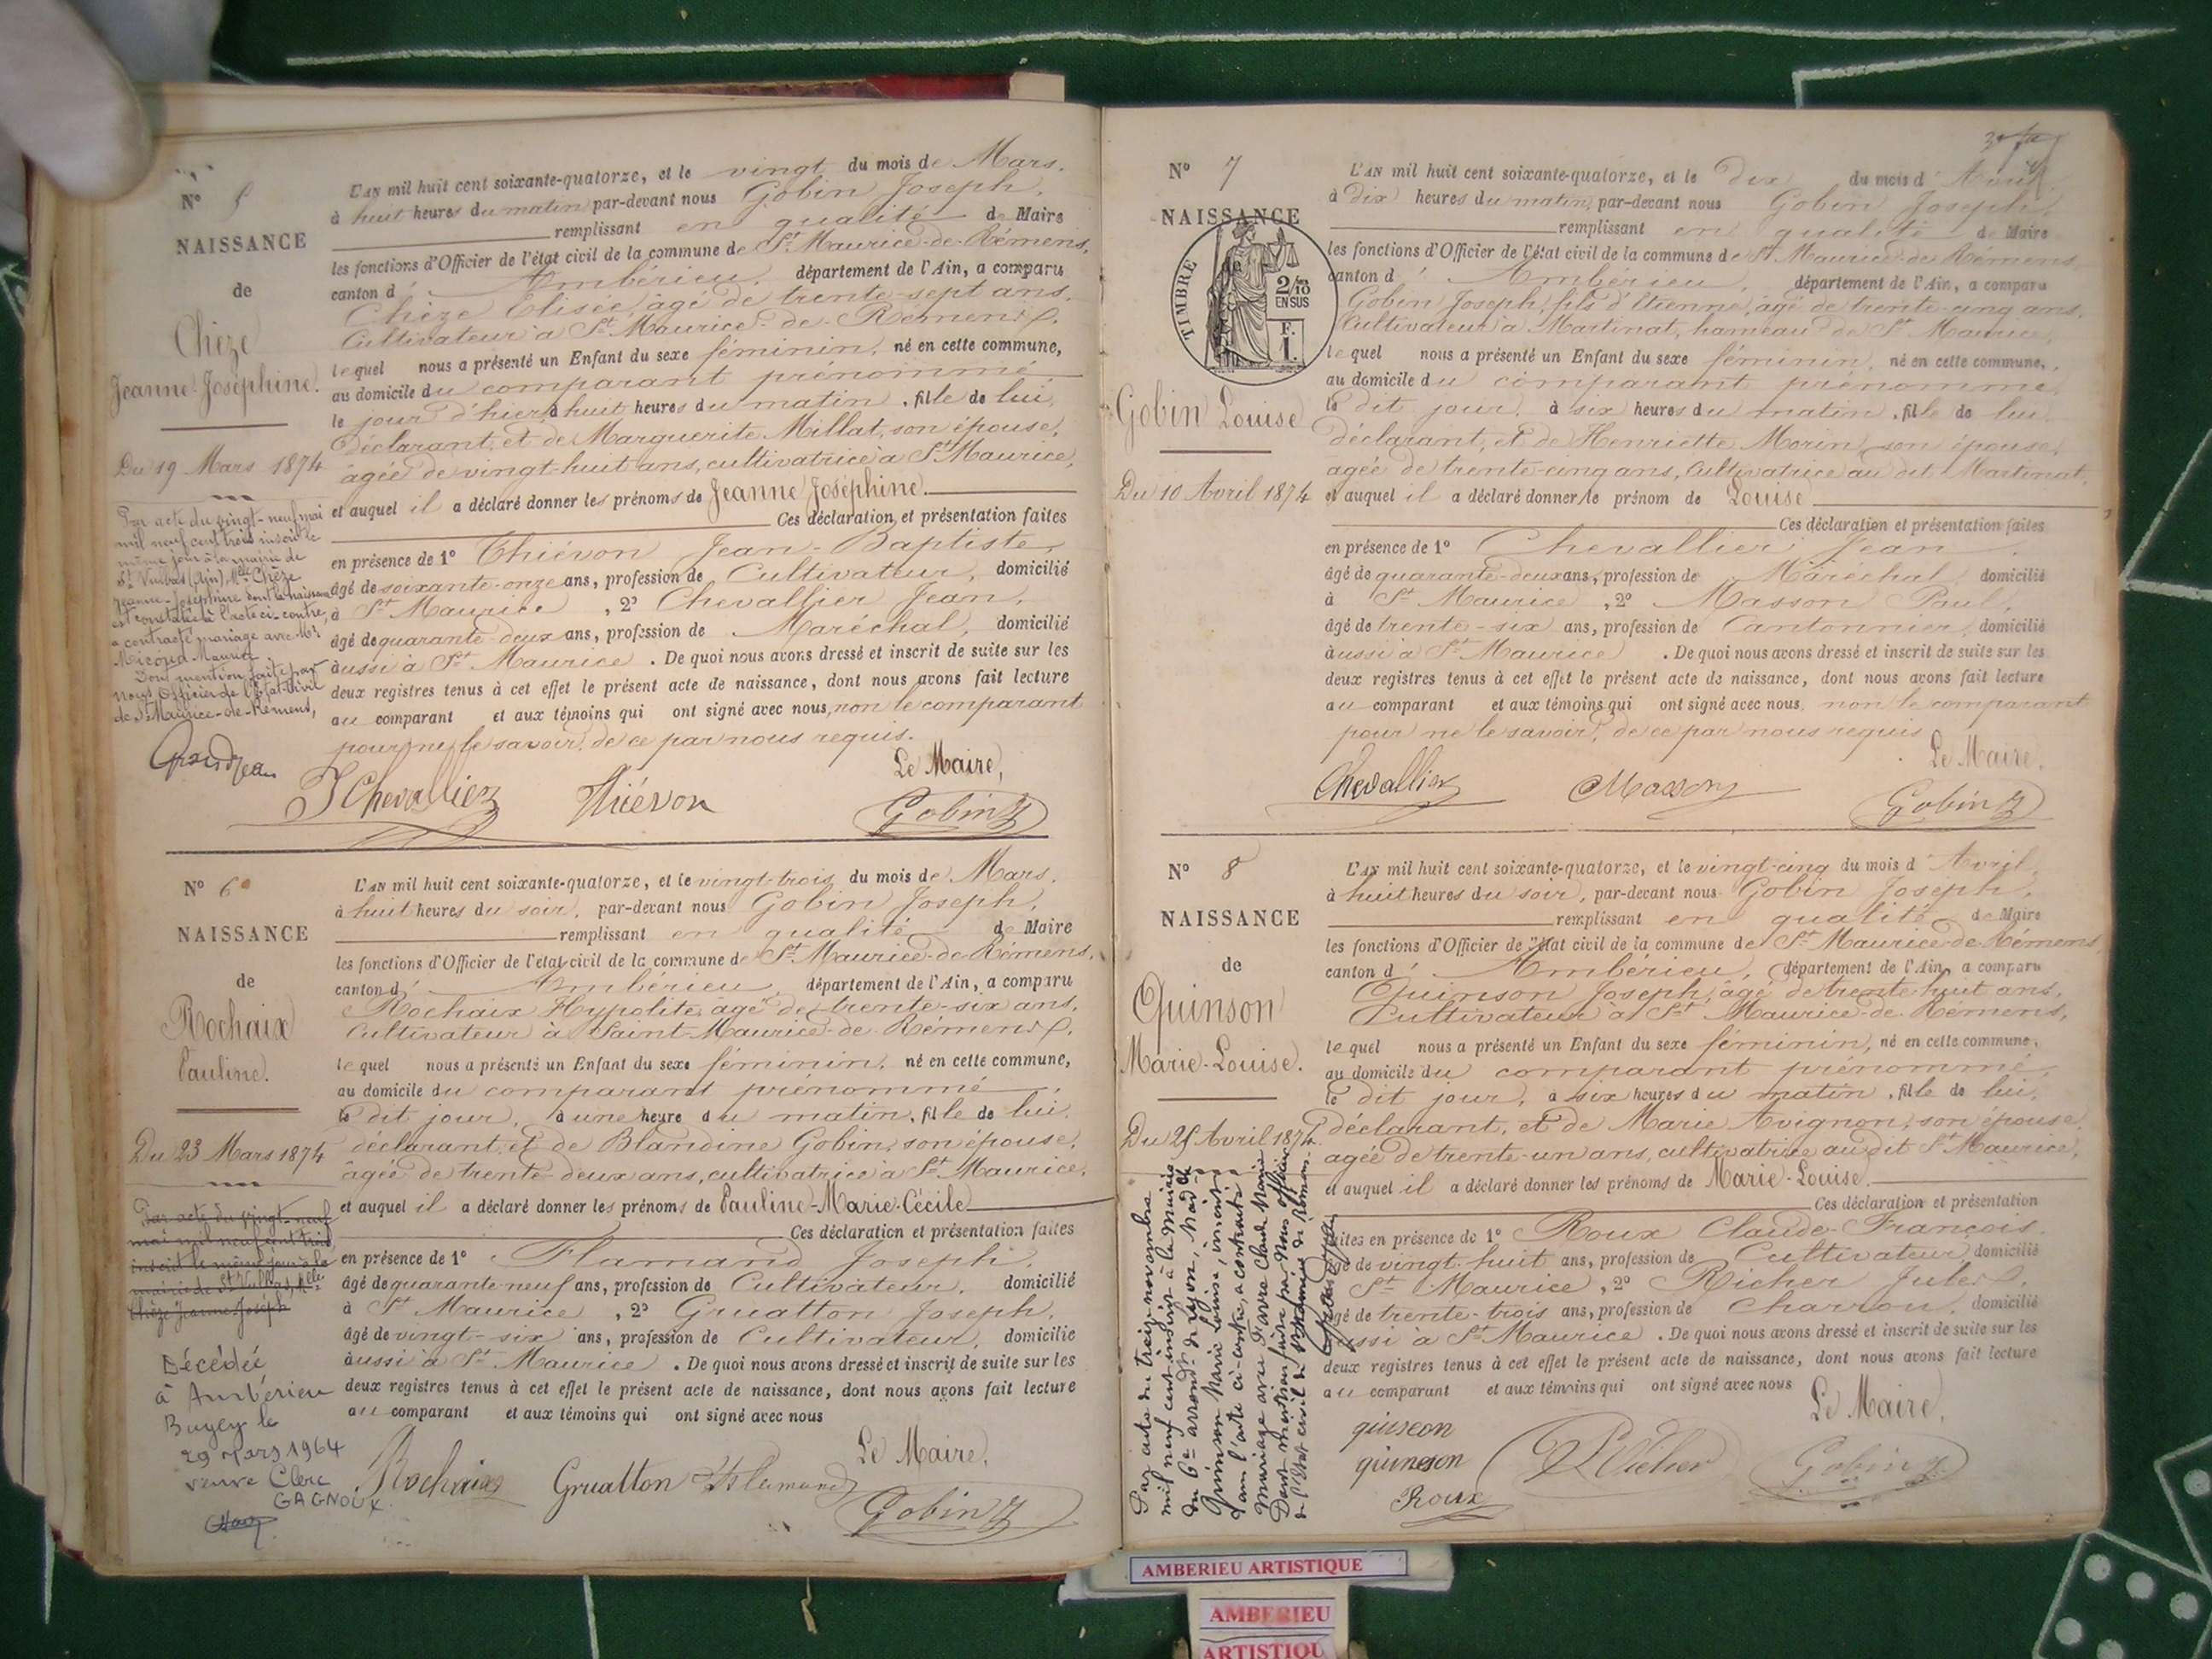 N° 5
NAISSANCE
de
Chèze
Jeanne-Joséphine.
Du 19 Mars 1874
Par acte du vingt-neuf mai
mil neuf cent trois inscrit le
même jour à la mairie de
St Vulbas (Ain), Mlle Chèze
Jeanne-Joséphine dont la naissance
est constatée à l'acte ci-contre,
a contracté mariage avec Mr
Maurice.
Dont mention faite par
nous Officier de l'Etat-Civil
de St Maurice-de-Rémens,
Grandjean
L'AN mil huit cent soixante-quatorze, et le vingt du mois de Mars,
à huit heures du matin par-devant nous Gobin Joseph,
remplissant en qualité de Maire
les fonctions d'Officier de l'état civil de la commune de St Maurice-de-Rémens,
canton d'Ambérieu, département de l'Ain, a comparu
Chèze Elisée, âgé de trente-sept ans,
Cultivateur à St Maurice-de-Rémens,
lequel nous a présenté un Enfant du sexe féminin, né en cette commune,
au domicile du comparant prénommé
le jour d'hier, à huit heures du matin, fille de lui,
Déclarant, et de Marguerite Millat, son épouse,
âgée de vingt-huit ans, cultivatrice à St Maurice,
et auquel il a déclaré donner les prénoms de Jeanne Joséphine.
Ces déclaration et présentation faites
en présence de 1° Thiévon Jean-Baptiste,
âgé de soixante-onze ans, profession de Cultivateur, domicilié
à St Maurice, 2° Chevallier Jean,
âgé de quarante-deux ans, profession de Maréchal, domicilié
aussi à St Maurice. De quoi nous avons dressé et inscrit de suite sur les
deux registres tenus à cet effet le présent acte de naissance, dont nous avons fait lecture
au comparant et aux témoins qui ont signé avec nous, non le comparant
pour ne le savoir, de ce par nous requis.
Le Maire,
J Chevallier Thiévon Gobin
N° 6
NAISSANCE
de
Rochaix
Pauline.
Du 23 Mars 1874
Par acte du vingt-neuf
mai mil neuf cent trois
inscrit le même jour à la
mairie de St Vulbas, Mlle
Chèze Jeanne-Joséph
Décédée
à Ambérieu
Bugey le
29 Mars 1964
veuve Clerc
GAGNOUX
L'AN mil huit cent soixante-quatorze, et le vingt-trois du mois de Mars,
à huit heures du soir, par-devant nous Gobin Joseph,
remplissant en qualité de Maire
les fonctions d'Officier de l'état civil de la commune de St Maurice-de-Rémens,
canton d'Ambérieu, département de l'Ain, a comparu
Rochaix Hypolite, âgé de trente-six ans,
Cultivateur à Saint-Maurice-de-Rémens,
lequel nous a présenté un Enfant du sexe féminin, né en cette commune,
au domicile du comparant prénommé,
le dit jour, à une heure du matin, fille de lui,
déclarant, et de Blandine Gobin, son épouse,
âgée de trente-deux ans, cultivatrice à St Maurice,
et auquel il a déclaré donner les prénoms de Pauline-Marie-Cécile
Ces déclaration et présentation faites
en présence de 1° Flamand Joseph,
âgé de quarante-neuf ans, profession de Cultivateur, domicilié
à St Maurice, 2° Gruatton Joseph,
âgé de vingt-six ans, profession de Cultivateur, domicilié
aussi à St Maurice. De quoi nous avons dressé et inscrit de suite sur les
deux registres tenus à cet effet le présent acte de naissance, dont nous avons fait lecture
au comparant et aux témoins qui ont signé avec nous
Le Maire,
Rochaix Gruatton Flamand Gobin
N° 7
NAISSANCE
de
TIMBRE
2/10
EN SUS
F.
1.
Gobin Louise
Du 10 Avril 1874
L'AN mil huit cent soixante-quatorze, et le dix du mois d'Avril
à dix heures du matin, par-devant nous Gobin Joseph,
remplissant en qualité de Maire
les fonctions d'Officier de l'état civil de la commune de St Maurice-de-Rémens
canton d'Ambérieu département de l'Ain, a comparu
Gobin Joseph, fils d'Etienne, âgé de trente-cinq ans,
Cultivateur à Martinat, hameau de St Maurice,
lequel nous a présenté un Enfant du sexe féminin, né en cette commune,
au domicile du comparant prénommé,
le dit jour, à six heures du matin, fille de lui
déclarant, et de Henriette Morin, son épouse,
âgée de trente-cinq ans, Cultivatrice au dit Martinat,
et auquel il a déclaré donner le prénom de Louise
Ces déclaration et présentation faites
en présence de 1° Chevallier Jean,
âgé de quarante-deux ans, profession de Maréchal, domicilié
à St Maurice, 2° Masson Paul,
âgé de trente-six ans, profession de Cantonnier, domicilié
aussi à St Maurice. De quoi nous avons dressé et inscrit de suite sur les
deux registres tenus à cet effet le présent acte de naissance, dont nous avons fait lecture
au comparant et aux témoins qui ont signé avec nous, non le comparant
pour ne le savoir, de ce par nous requis
Le Maire,
Chevallier Masson Gobin
N° 8
NAISSANCE
de
Quinson
Marie-Louise.
Du 25 Avril 1874
Par acte du treize novembre
mil neuf cent inscrit à la Mairie
du 6e arrondt de Lyon, Mad elle
Quinson Marie Louise, inscrite
dans l'acte ci-contre, a contracté
Mariage avec Favre Claude Marie
Dont mention faite par Nous officier
de l'état civil de St Maurice de Rémens.
L'AN mil huit cent soixante-quatorze, et le vingt-cinq du mois d'Avril,
à huit heures du soir, par-devant nous Gobin Joseph,
remplissant en qualité de Maire
les fonctions d'Officier de l'état civil de la commune de St Maurice-de-Rémens
canton d'Ambérieu, département de l'Ain, a comparu
Quinson Joseph, âgé de trente-huit ans,
Cultivateur à St Maurice-de-Rémens,
lequel nous a présenté un Enfant du sexe féminin, né en cette commune,
au domicile du comparant prénommé,
le dit jour, à six heures du matin, fille de lui,
déclarant, et de Marie Avignon, son épouse,
âgée de trente-un ans, cultivatrice au dit St Maurice,
et auquel il a déclaré donner les prénoms de Marie-Louise.
Ces déclaration et présentation
faites en présence de 1° Roux Claude-François
âgé de vingt-huit ans, profession de Cultivateur, domicilié
St Maurice, 2° Richer Jules,
âgé de trente-trois ans, profession de Charron, domicilié
aussi à St Maurice. De quoi nous avons dressé et inscrit de suite sur les
deux registres tenus à cet effet le présent acte de naissance, dont nous avons fait lecture
au comparant et aux témoins qui ont signé avec nous
Le Maire,
quinson
quinson Richer Gobin
Roux
AMBERIEU ARTISTIQUE
AMBERIEU
ARTISTIQU